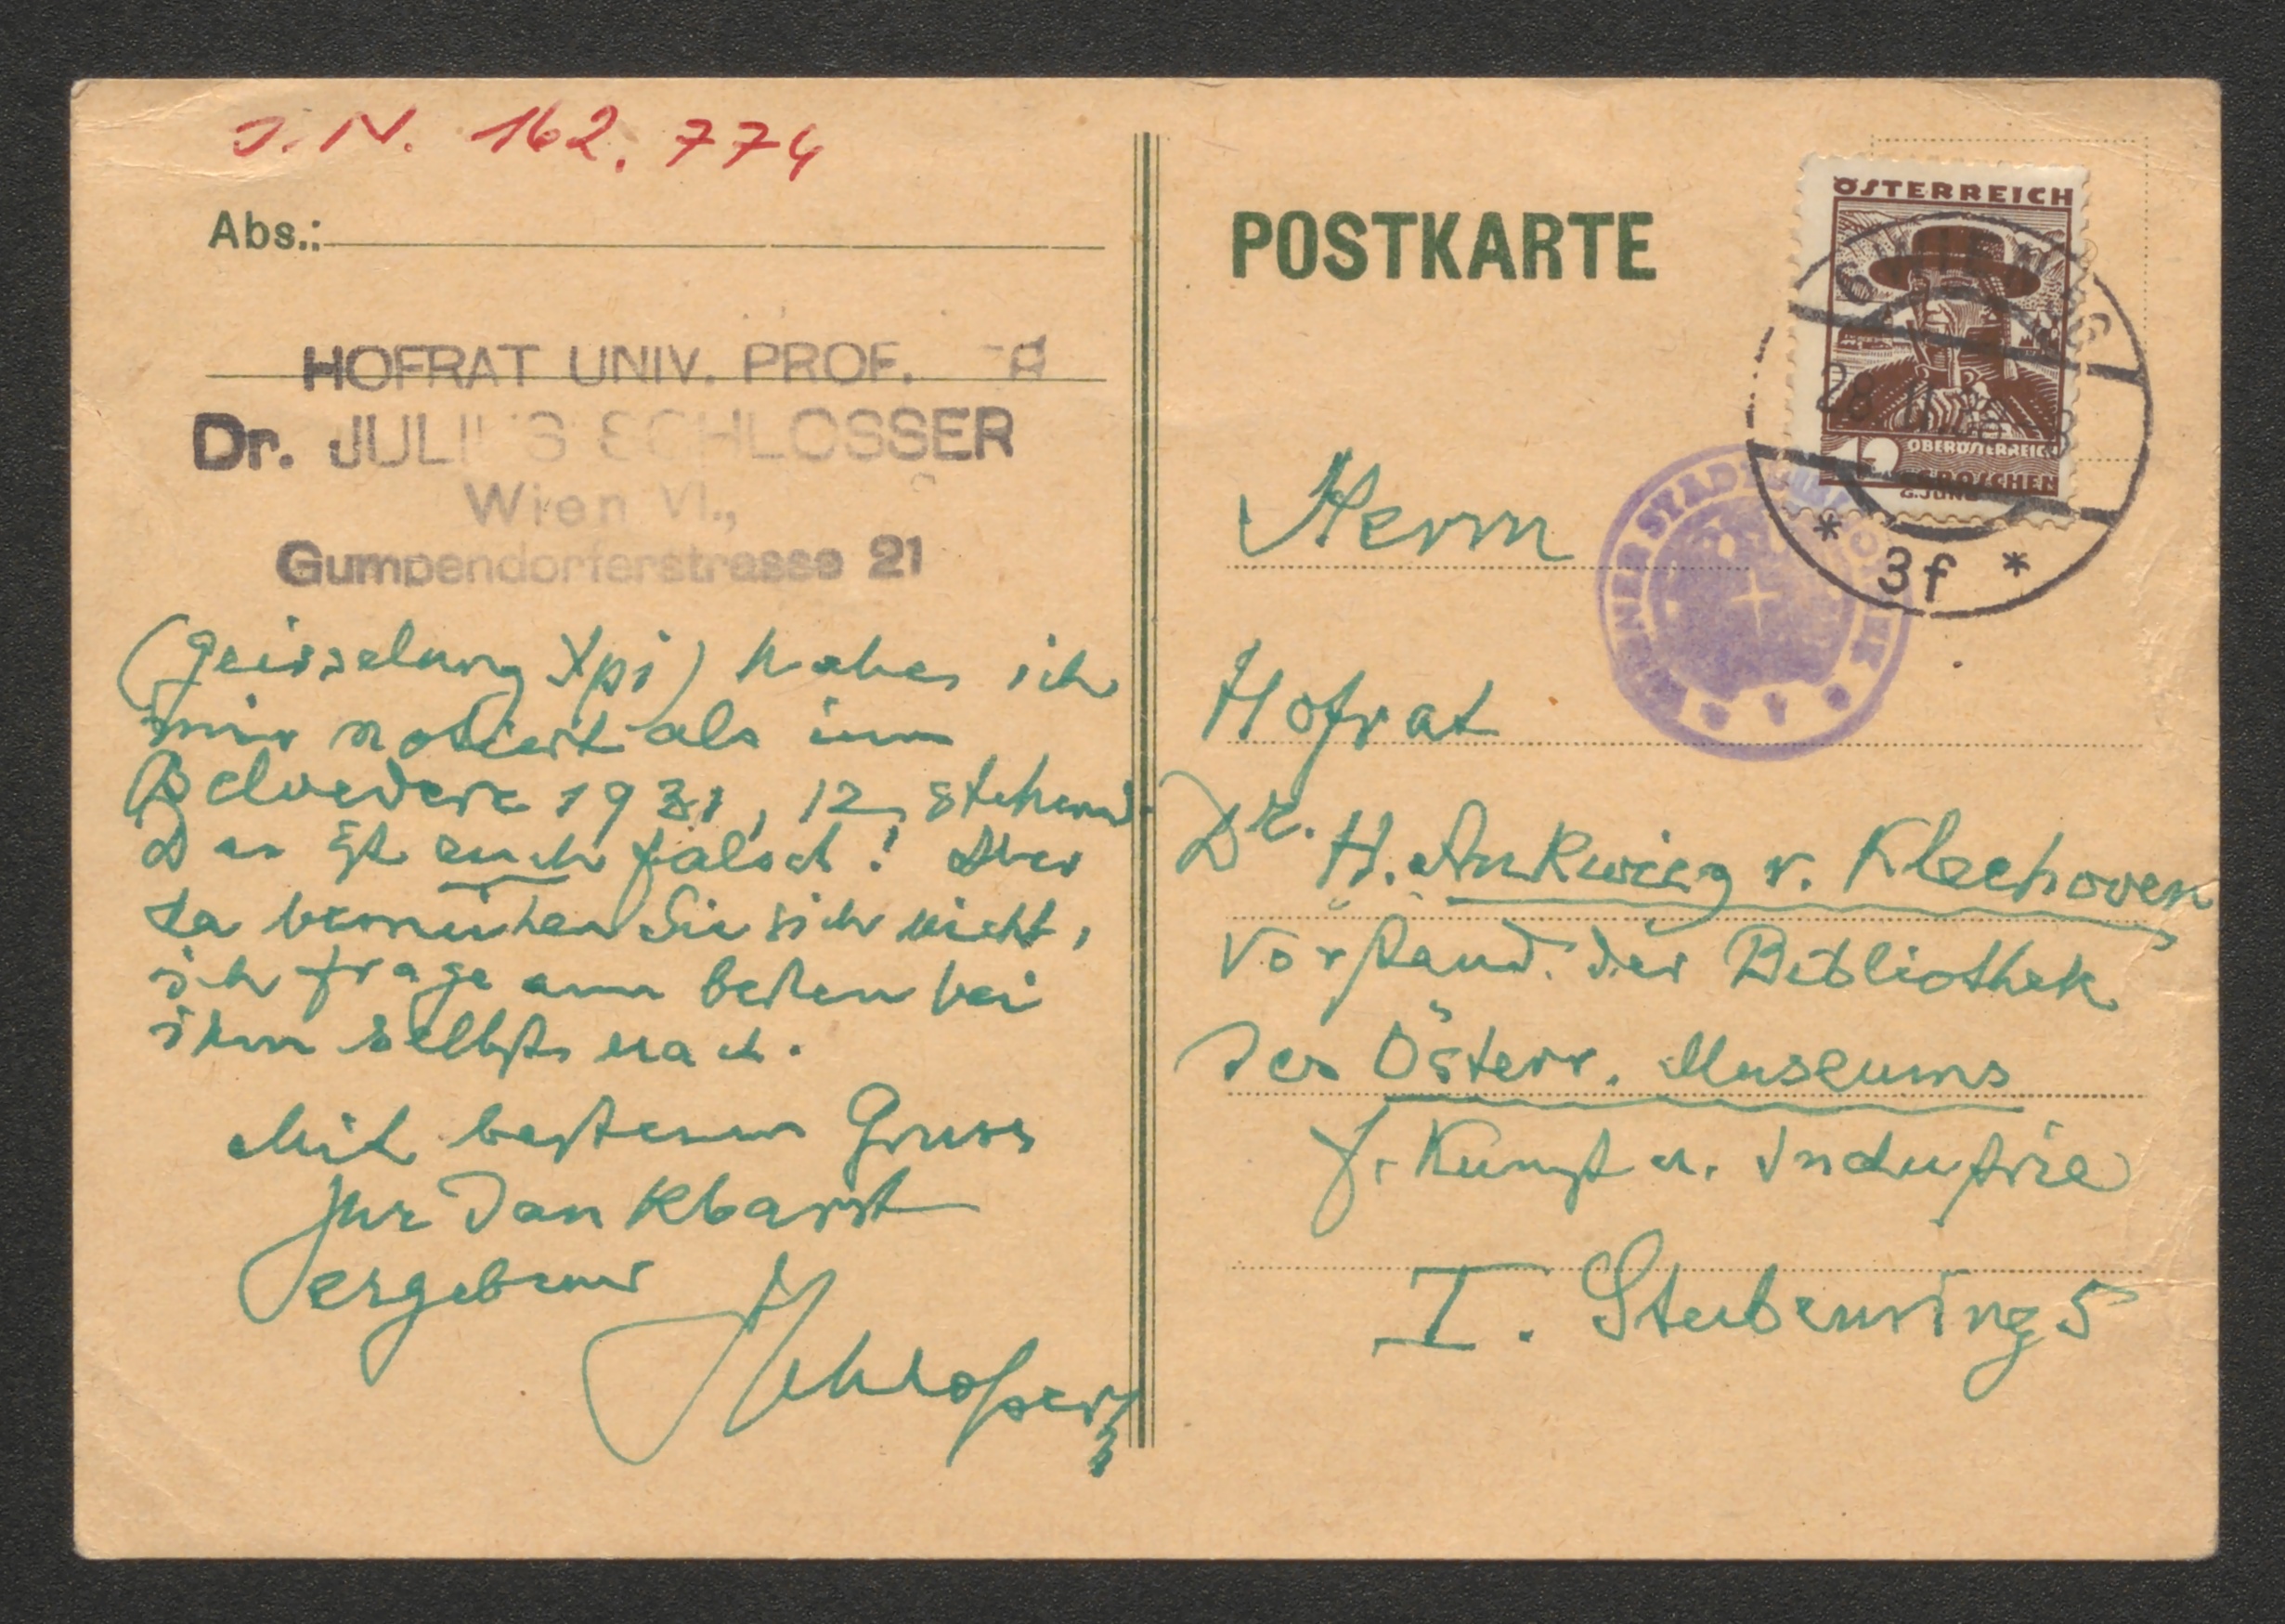 J. N. 162.774
Abs.:
HOFRAT UNIV. PROF.
Dr. JULIUS SCHLOSSER
Wien VI.,
Gumpendorferstrasse 21
(Geisselung Xpi) habe ich
mir notiert als im
Belvedere 1931, 12, stehend
Das ist auch falsch! Aber
da bemühen Sie sich nicht,
ich frage am besten bei
ihm selbst nach.
Mit bestem Gruss
Ihr dankbarst
ergebener
JSchlosser
POSTKARTE
ÖSTERREICH
OBERÖSTERREICH
12 GROSCHEN
WIEN
28
* 3f *
WIENER STADTBIBLIOTHEK
Herrn
Hofrat
Dr. H. Ankwicz v. Kleehoven
Vorstand der Bibliothek
des Österr. Museums
f. Kunst u. Industrie
I. Stubenring 5